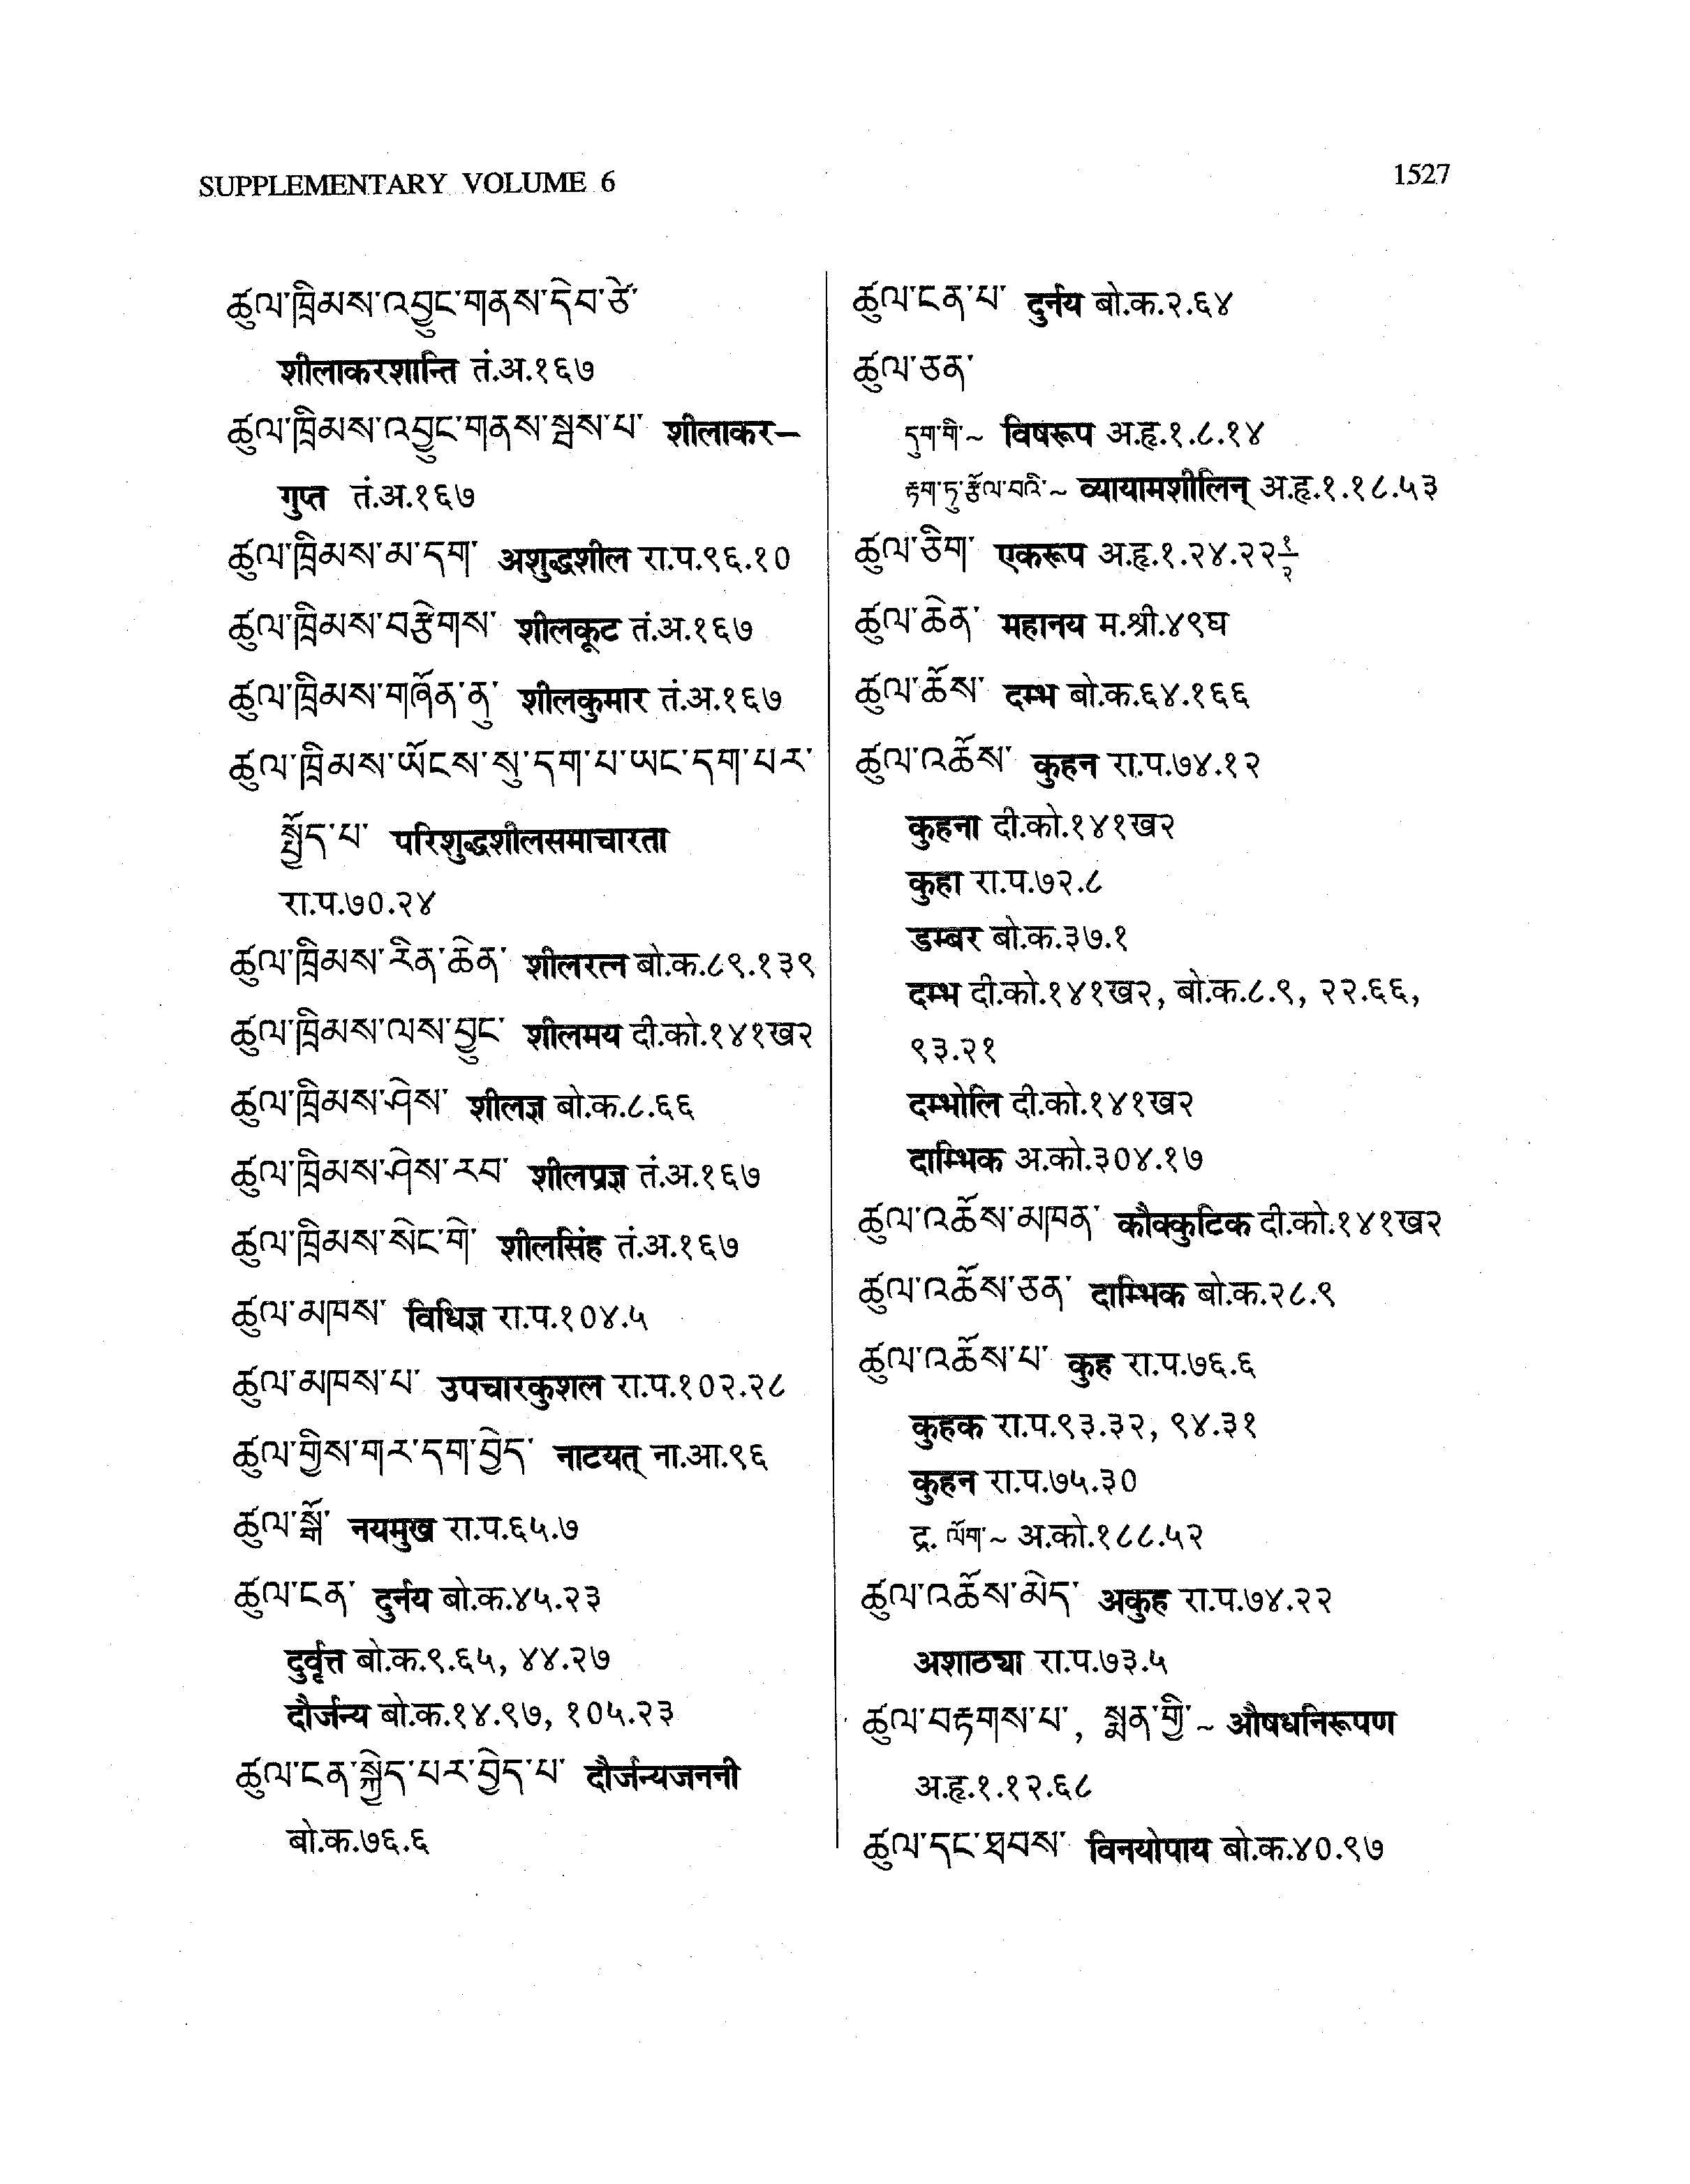 SUPPLEMENTARY VOLUME 6
1527
ཚུལ་ཁྲིམས་འབྱུང་གནས་དེབ་ཙེ་
शीलाकरशान्ति तं.अ.१६७
ཚུལ་ཁྲིམས་འབྱུང་གནས་སྦས་པ་ शीलाकर–
गुप्त तं.अ.१६७
ཚུལ་ཁྲིམས་མ་དག་ अशुद्धशील रा.प.९६.१०
ཚུལ་ཁྲིམས་བརྩེགས་ शीलकूट तं.अ.१६७
ཚུལ་ཁྲིམས་གཞོན་ནུ་ शीलकुमार तं.अ.१६७
ཚུལ་ཁྲིམས་ཡོངས་སུ་དག་པ་ཡང་དག་པར་
སྤྱོད་པ་ परिशुद्धशीलसमाचारता
रा.प.७०.२४
ཚུལ་ཁྲིམས་རིན་ཆེན་ शीलरत्न बो.क.८९.१३९
ཚུལ་ཁྲིམས་ལས་བྱུང་ शीलमय दी.को.१४१ख२
ཚུལ་ཁྲིམས་ཤེས་ शीलज्ञ बो.क.८.६६
ཚུལ་ཁྲིམས་ཤེས་རབ་ शीलप्रज्ञ तं.अ.१६७
ཚུལ་ཁྲིམས་སེང་གེ་ शीलसिंह तं.अ.१६७
ཚུལ་མཁས་ विधिज्ञ रा.प.१०४.५
ཚུལ་མཁས་པ་ उपचारकुशल रा.प.१०२.२८
ཚུལ་གྱིས་གར་དག་བྱེད་ नाटयत् ना.आ.९६
ཚུལ་སྒོ་ नयमुख रा.प.६५.७
ཚུལ་ངན་ दुर्नय बो.क.४५.२३
दुर्वृत्त बो.क.९.६५, ४४.२७
दौर्जन्य बो.क.१४.९७, १०५.२३
ཚུལ་ངན་སྐྱེད་པར་བྱེད་པ་ दौर्जन्यजननी
बो.क.७६.६
ཚུལ་ངན་པ་ दुर्नय बो.क.२.६४
ཚུལ་ཅན་
དུག་གི་~ विषरूप अ.हृ.१.८.१४
རྟག་ཏུ་རྩོལ་བའི་~ व्यायामशीलिन् अ.हृ.१.१८.५३
ཚུལ་ཅིག་ एकरूप अ.हृ.१.२४.२२ १/२
ཚུལ་ཆེན་ महानय म.श्री.४९घ
ཚུལ་ཆོས་ दम्भ बो.क.६४.१६६
ཚུལ་འཆོས་ कुहन रा.प.७४.१२
कुहना दी.को.१४१ख२
कुहा रा.प.७२.८
डम्बर बो.क.३७.१
दम्भ दी.को.१४१ख२, बो.क.८.९, २२.६६,
९३.२१
दम्भोलि दी.को.१४१ख२
दाम्भिक अ.को.३०४.१७
ཚུལ་འཆོས་མཁན་ कौक्कुटिक दी.को.१४१ख२
ཚུལ་འཆོས་ཅན་ दाम्भिक बो.क.२८.९
ཚུལ་འཆོས་པ་ कुह रा.प.७६.६
कुहक रा.प.९३.३२, ९४.३१
कुहन रा.प.७५.३०
द्र. ལོག་~ अ.को.१८८.५२
ཚུལ་འཆོས་མེད་ अकुह रा.प.७४.२२
अशाठ्या रा.प.७३.५
ཚུལ་བརྟགས་པ་, སྨན་གྱི་~ औषधनिरूपण
अ.हृ.१.१२.६८
ཚུལ་དང་ཐབས་ विनयोपाय बो.क.४०.९७